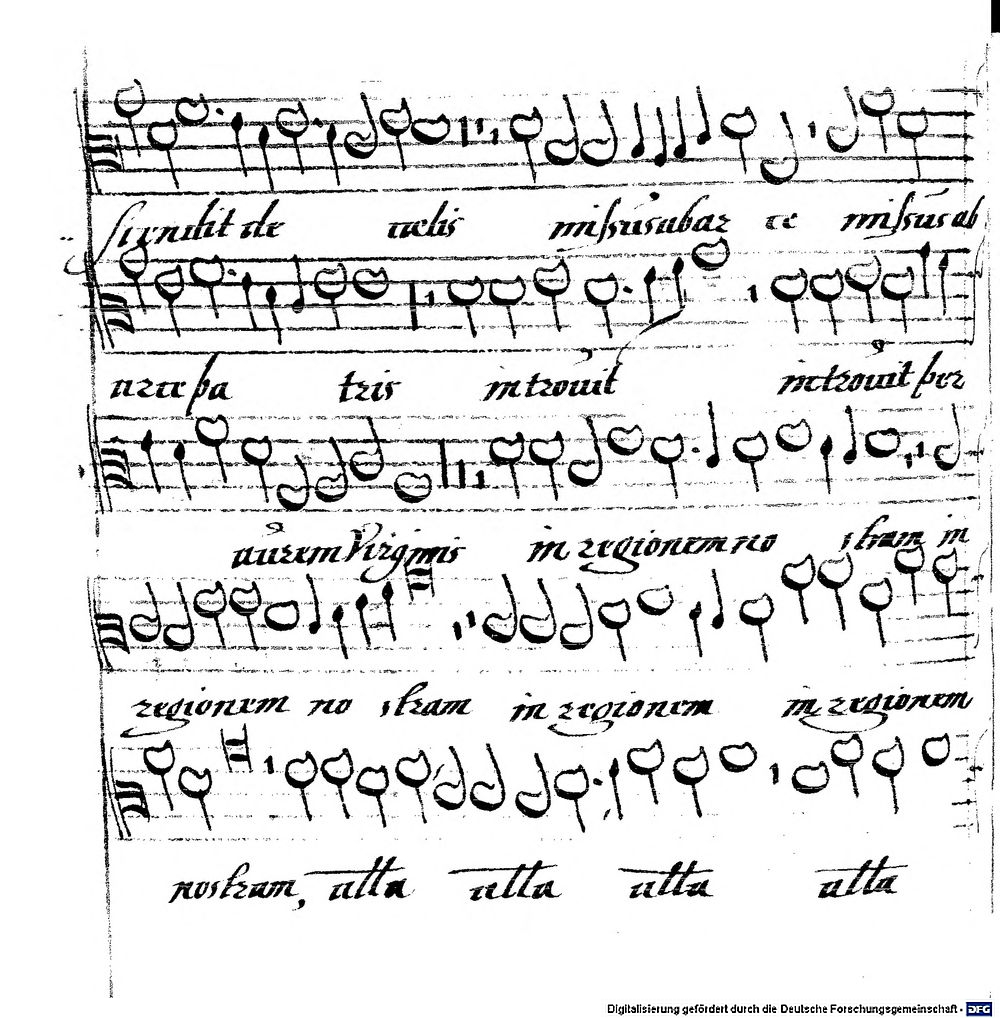 scendit de cælis missus ab ar ce missus ab
arce pa tris introuit introuit per
aurem Virginis in regionem no stram in
regionem no stram in regionem in regionem
nostram, alla alla alla alla
Digitalisierung gefördert durch die Deutsche Forschungsgemeinschaft - DFG